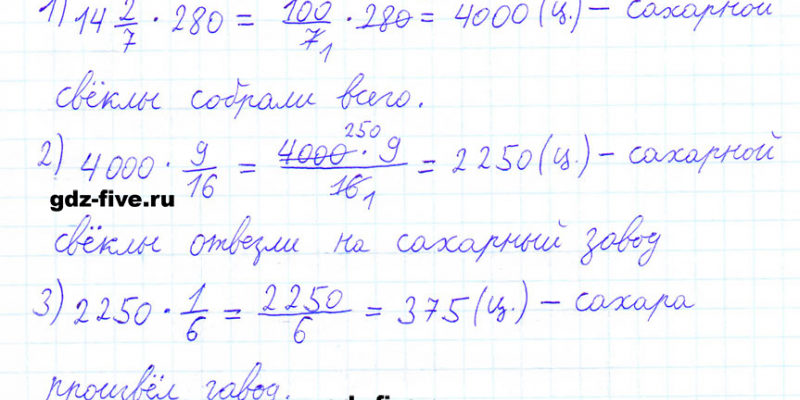 1) 14 2/7 · 280 = 100/7 1 · 280 = 4000 (ц.) – сахарной
свёклы собрали всего.
2) 4000 · 9/16 = 4000 250 · 9/16 1 = 2250 (ц.) – сахарной
gdz-five.ru
свёклы отвезли на сахарный завод
3) 2250 · 1/6 = 2250/6 = 375 (ц.) – сахара
произвёл завод.